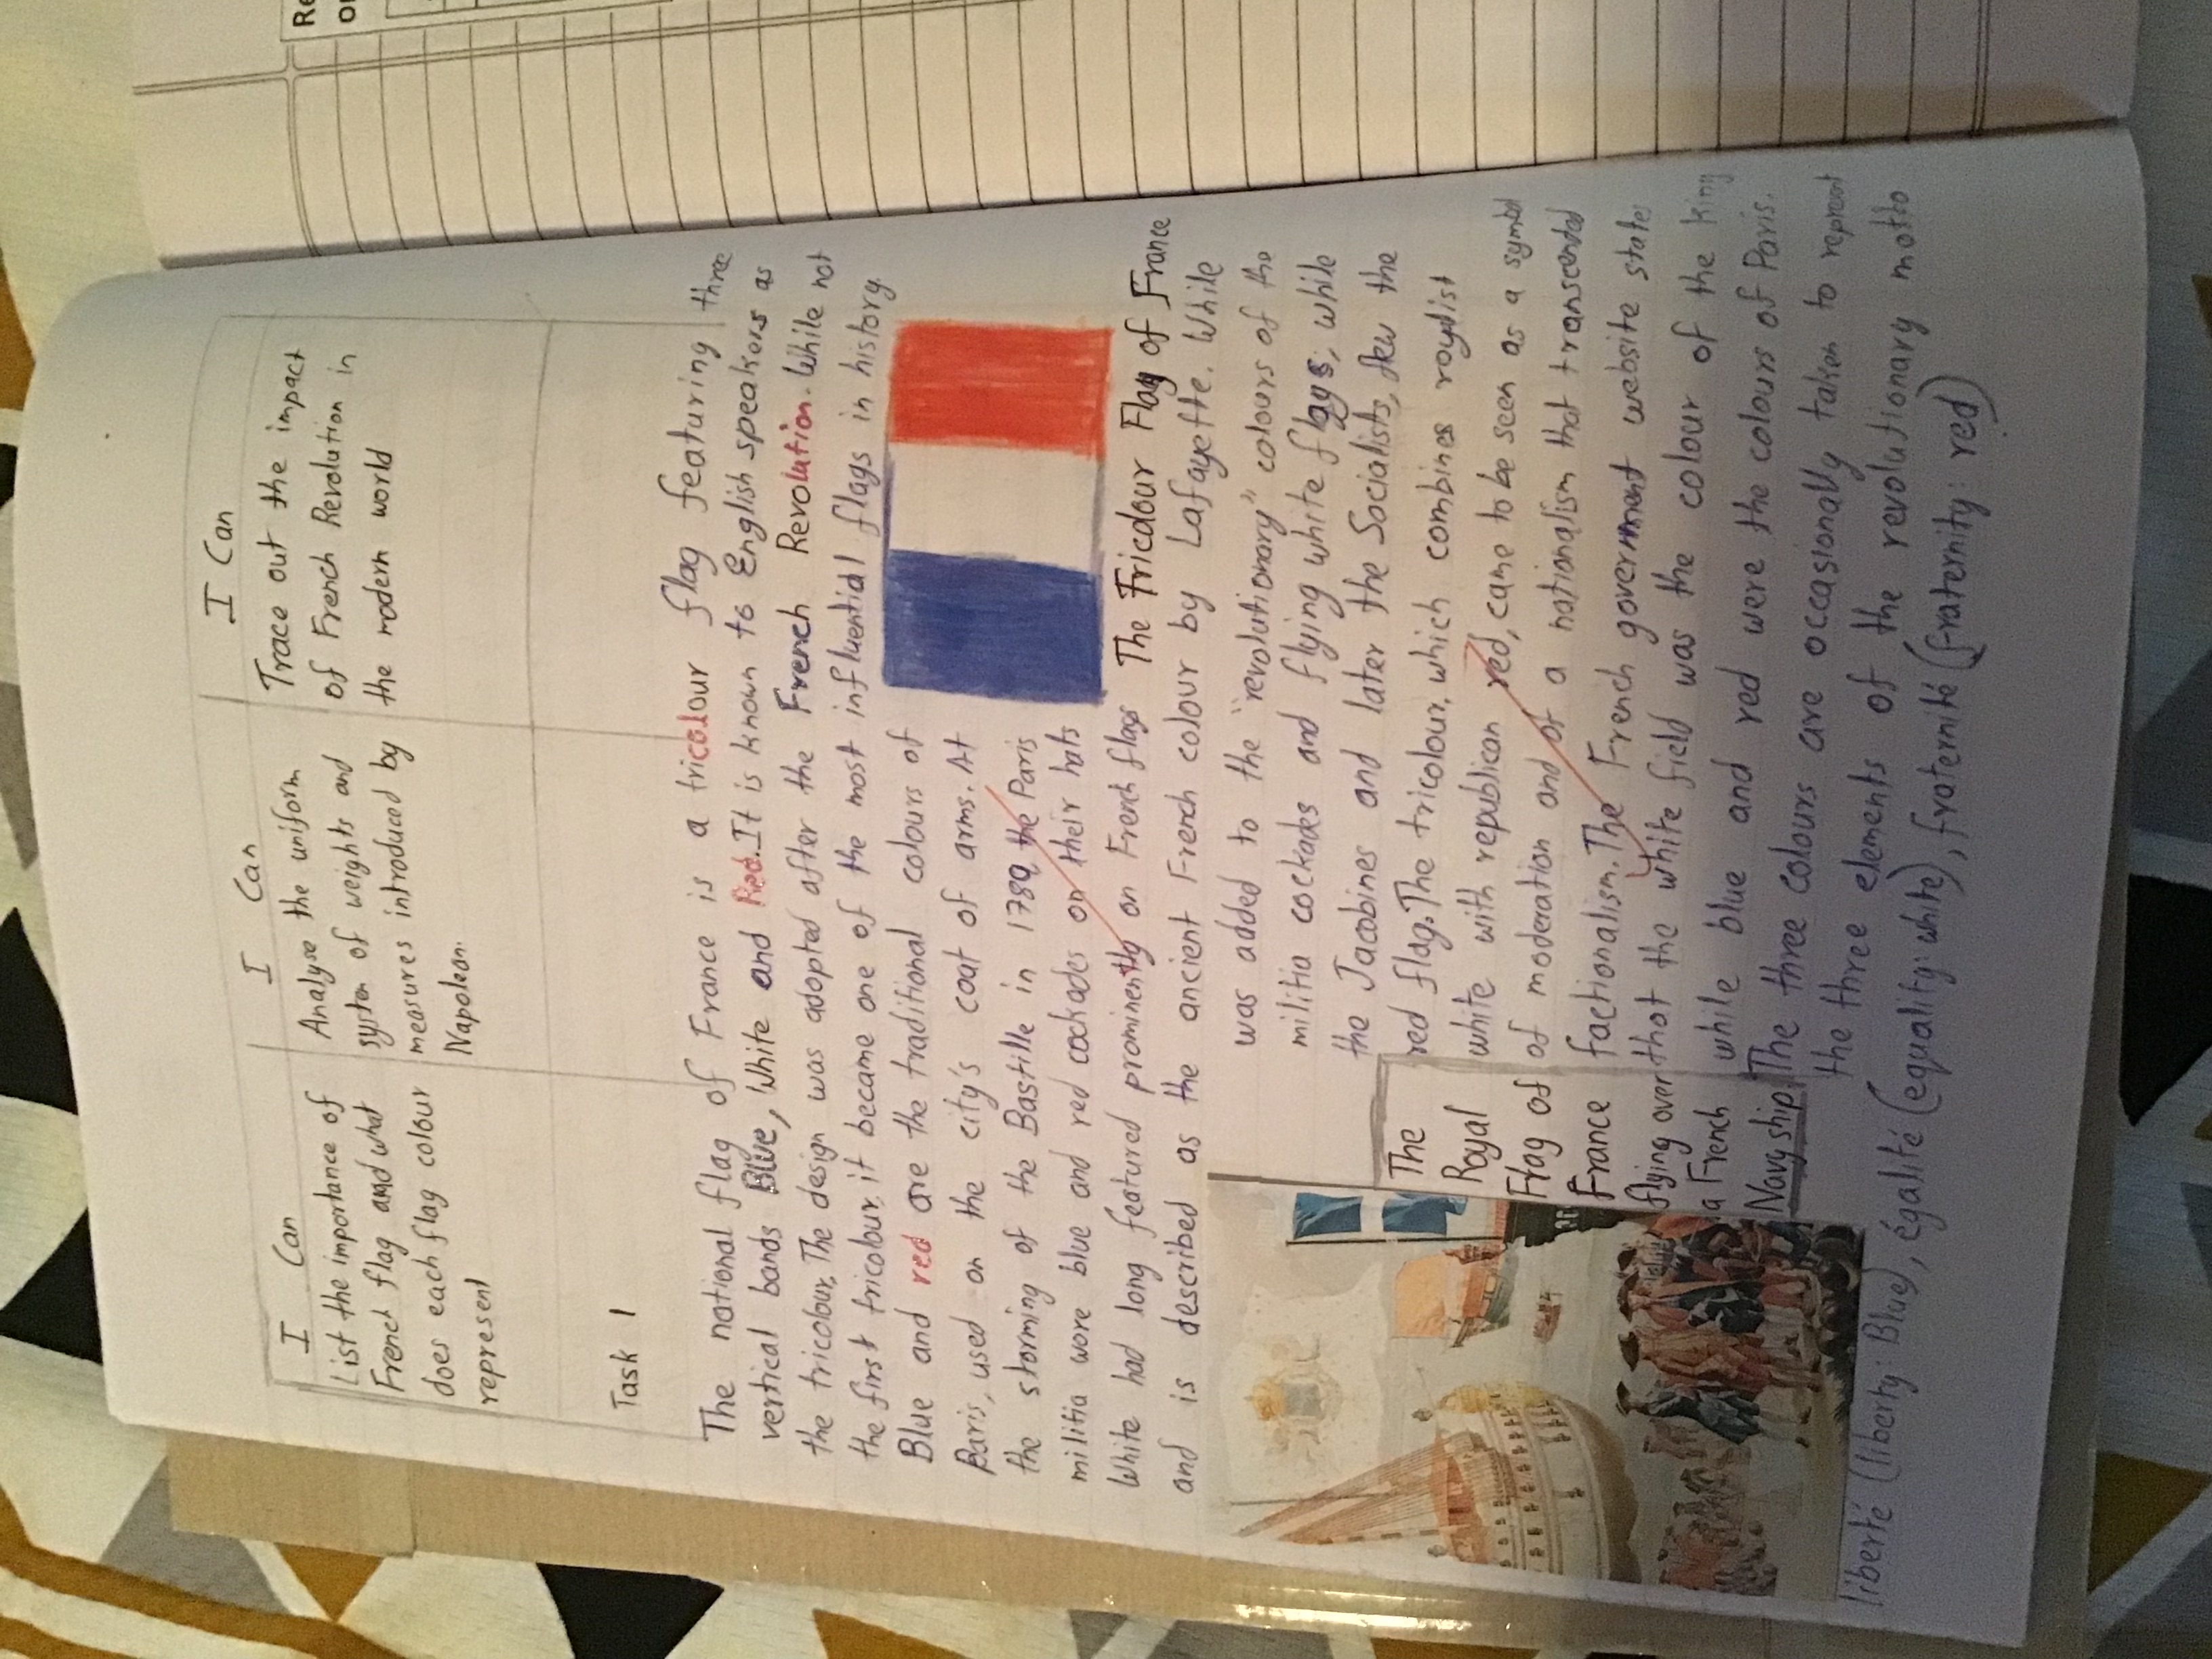 I Can
List the importance of
French flag and what
does each flag colour
represent
I Can
Analyse the uniform
system of weights and
measures introduced by
Napolean.
I Can
Trace out the impact
of French Revolution in
the modern world
Task 1
The national flag of France is a tricolour flag featuring three
vertical bands Blue, White and Red. It is known to English speakers as
the tricolour. The design was adopted after the French Revolution. While not
the first tricolour, it became one of the most influential flags in history.
Blue and red are the traditional colours of
Paris, used on the city's coat of arms. At
the storming of the Bastille in 1789, the Paris
militia wore blue and red cockades on their hats
White had long featured prominently on French flags
The Fricdour Flag of France
and is described as the ancient French colour by Lafayette. While
was added to the "revolutionary" colours of the
militia cockades and flying white flags, while
the Jacobines and later the Socialists, flew the
red flag. The tricolour, which combines roylist
white with republican red, came to be seen as a symbol
of moderation and of a nationalism that transcended
factionalism. The French government website states
that the white field was the colour of the king
while blue and red were the colours of Paris.
The three colours are occasionally taken to represent
the three elements of the revolutionary motto
The
Royal
Flag of
France
flying over
a French
Navy ship.
liberté (liberty: Blue), égalité (equality: white), fraternité (fraternity: red)
Re